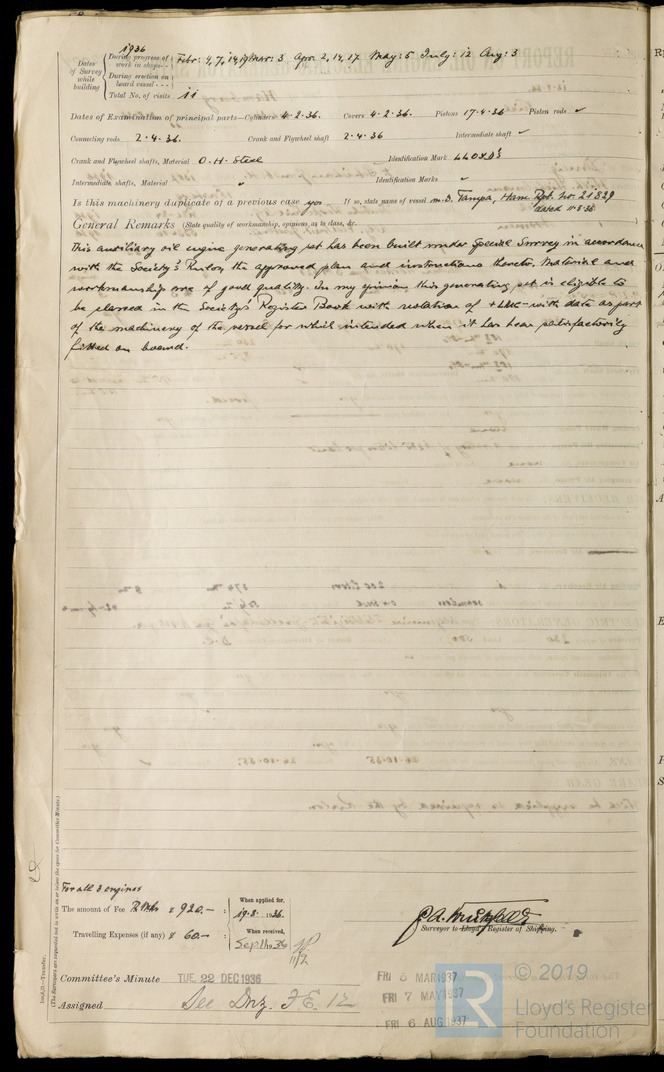 1936
Dates of Survey while building
During progress of work in shops - - Febr: 4, 7, 14, 19, Mar: 3 Apr: 2, 14, 17 May: 5 July: 12 Aug: 3
During erection on board vessel - - -
Total No. of visits 11
Dates of Examination of principal parts—Cylinders 4·2·36. Covers 4·2·36. Pistons 17·4·36 Piston rods ✓
Connecting rods 2·4·36. Crank and Flywheel shaft 2·4·36 Intermediate shaft ✓
Crank and Flywheel shafts, Material O.H. Steel Identification Mark
Intermediate shafts, Material ✓ Identification Marks ✓
Is this machinery duplicate of a previous case yes If so, state name of vessel m.s. Tampa, Ham. Rpt. No. 21829
dated 11·8·36
General Remarks (State quality of workmanship, opinions as to class, &c.
This auxiliary oil engine generating set has been built under Special Survey in accordance
with the Society's Rules, the approved plan and instructions thereto. Material and
workmanship are of good quality. In my opinion this generating set is eligible to
be classed in the Society's Register Book with notation of + LMC - with date as part
of the machinery of the vessel for which intended when it has been satisfactorily
fitted on board.
(The Surveyors are requested not to write on or below the space for Committee's Minute.)
For all 3 engines
The amount of Fee R.Mks 920.— : When applied for, 19·8· 1936
Travelling Expenses (if any) 60.— : When received, Sept 11 1936
Surveyor to Lloyd's Register of Shipping.
Committee's Minute TUE 22 DEC 1936
FRI 5 MAR 1937
Assigned See
FRI 7 MAY 1937
FRI 6 AUG 1937
© 2019
Lloyd's Register
Foundation